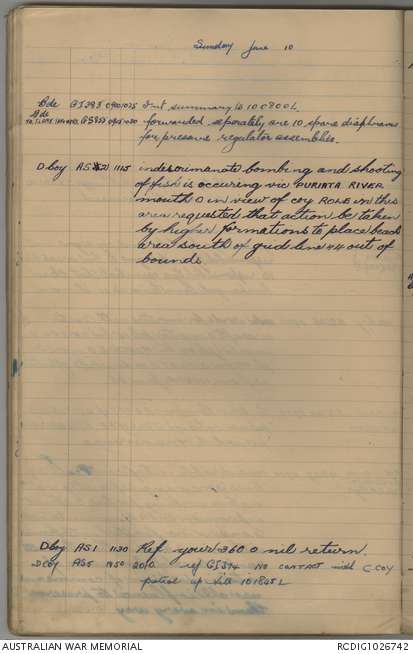 Sunday June 10
Bde GI383 090 1025 Int summary to 100800L
Bde
GS852 1030 forwarded separately are 10 spare diaphrams
for pressure regulator assemblies.
D Coy AS 2 1115 indescrimanate bombing and shooting
of fish is occuring vic PURIATA RIVER
mouth O in view of coy ROLE in this
area requested that action be taken
by higher formations to place beach
area south of grid line 44 out of
bounds
D Coy AS1 1130 Ref your 360 O nil return.
D COY AS5 1950 ref GI394 NO CONTACT with C COY
patrol up till 101845L
AUSTRALIAN WAR MEMORIAL
RCDIG1026742